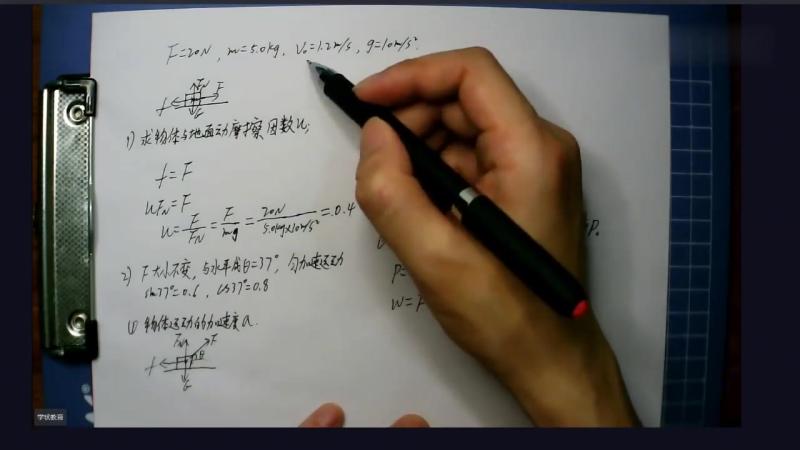 F=20N, m=5.0kg, V₀=1.2m/s, g=10m/s².
FN
F
f
G
1) 求物体与地面动摩擦因数u;
f=F
uFN=F
u=F/FN=F/mg=20N/5.0kg×10m/s²=0.4
2) F大小不变,与水平成θ=37°,匀加速运动
sin37°=0.6, cos37°=0.8
(1) 物体运动的加速度a.
FN
F
θ
f
G
P=
W=F
学状教育